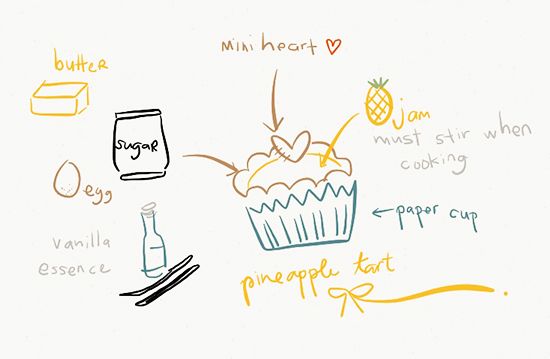 mini heart
butter
sugar
jam
must stir when
cooking
egg
paper cup
vanilla
essence
pineapple tart